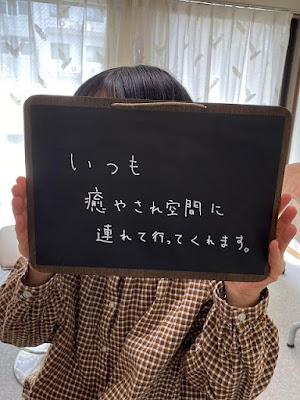 いつも
癒やされ空間に
連れて行ってくれます。